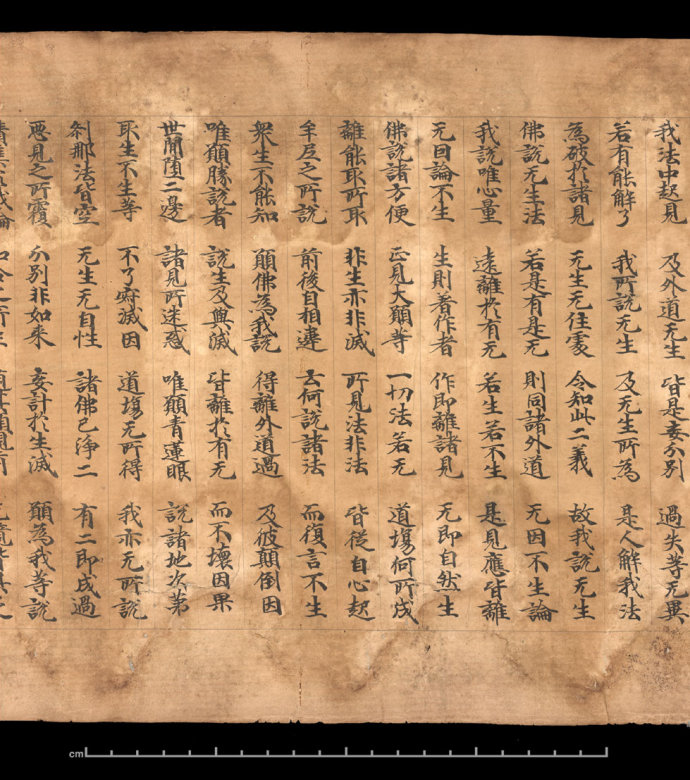 我法中起見 及外道无生 皆是妄分別 過失等无異
若有能解了 我所說无生 及无生所為 是人解我法
為破於諸見 无生无住處 令知此二義 故我說无生
佛說无生法 若是有是无 則同諸外道 无因不生論
我說唯心量 遠離於有无 若生若不生 是見應皆離
无因論不生 生則著作者 作即離諸見 无即自然生
佛說諸方便 正見大願等 一切法若无 道場何所成
離能取所取 非生亦非滅 所見法非法 皆從自心起
牟尼之所說 前後自相違 云何說諸法 而復言不生
衆生不能知 願佛為我說 得離外道過 及彼顛倒因
唯願勝說者 說生及與滅 皆離於有无 而不壞因果
世間墮二邊 諸見所迷惑 唯願青蓮眼 說諸地次第
取生不生等 不了寂滅因 道場无所得 我亦无所說
剎那法皆空 无生无自性 諸佛已淨二 有二即成過
惡見之所覆 分別非如來 妄計於生滅 願為我等說
cm